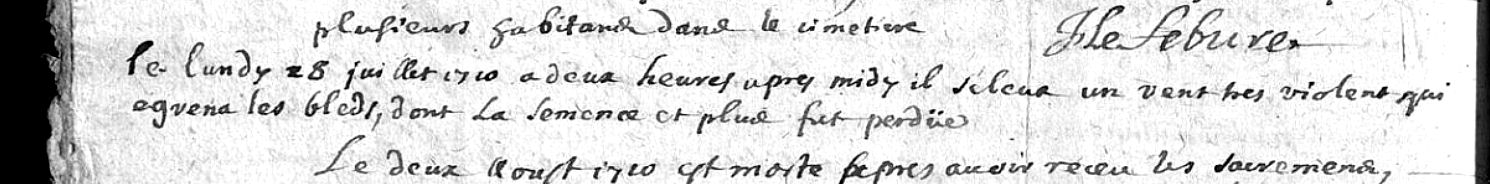 plusieurs habitans dans le cimetiere JLefebure
le lundy 28 juillet 1710 a deux heures apres midy il s'eleva un vent tres violent qui
egrena les bleds, dont La semence et plus fut perdüe
Le deux Aoust 1710 est morte apres avoir receu les sacremens,